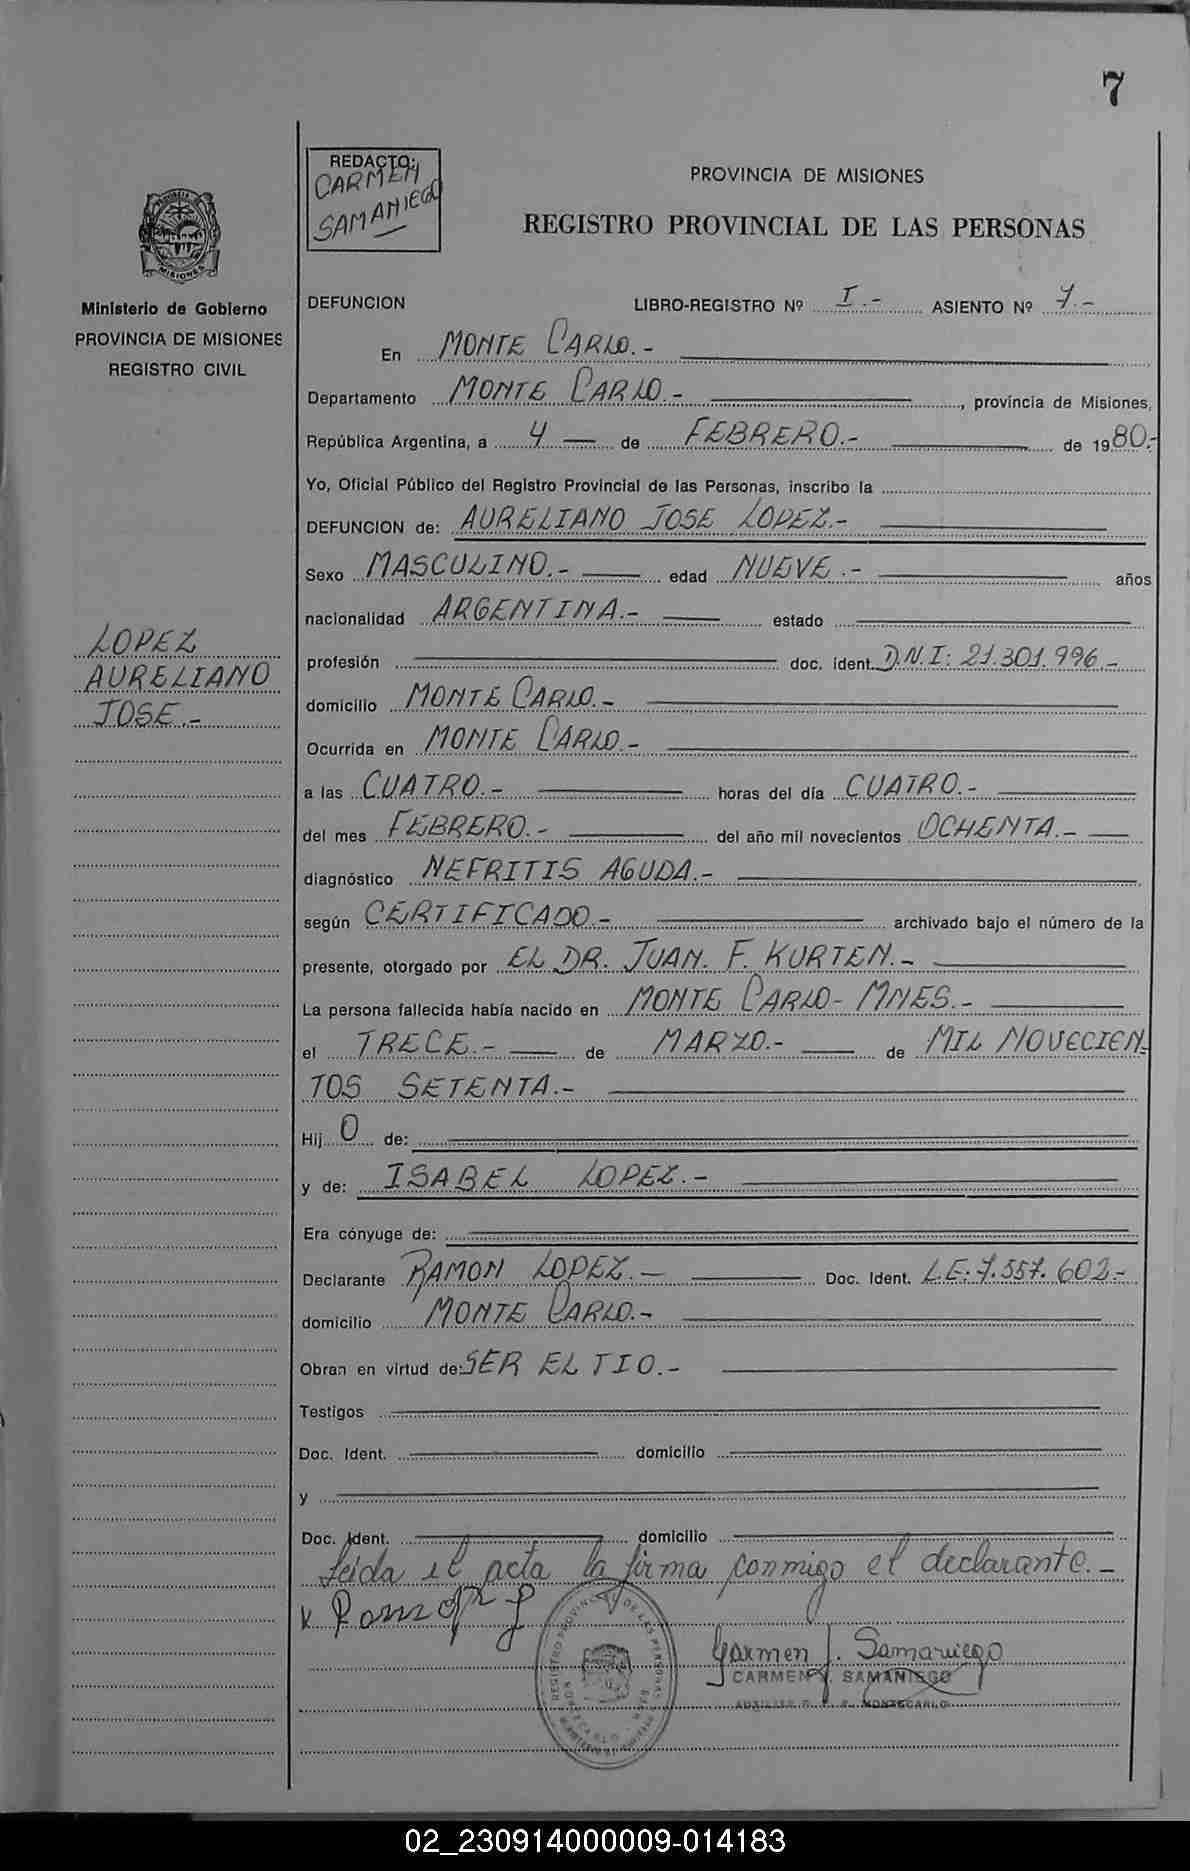 7
REDACTO:
CARMEN
SAMANIEGO
PROVINCIA DE MISIONES
REGISTRO PROVINCIAL DE LAS PERSONAS
MISIONES
Ministerio de Gobierno
PROVINCIA DE MISIONES
REGISTRO CIVIL
LOPEZ
AURELIANO
JOSE.-
DEFUNCION LIBRO-REGISTRO Nº I.- ASIENTO Nº 7.-
En MONTE CARLO.-
Departamento MONTE CARLO.- , provincia de Misiones,
República Argentina, a 4 — de FEBRERO.- de 1980.-
Yo, Oficial Público del Registro Provincial de las Personas, inscribo la
DEFUNCION de: AURELIANO JOSE LOPEZ.-
Sexo MASCULINO.- edad NUEVE.- años
nacionalidad ARGENTINA.- estado
profesión doc. ident. D.N.I: 21.301.996.-
domicilio MONTE CARLO.-
Ocurrida en MONTE CARLO.-
a las CUATRO.- horas del día CUATRO.-
del mes FEBRERO.- del año mil novecientos OCHENTA.-
diagnóstico NEFRITIS AGUDA.-
según CERTIFICADO.- archivado bajo el número de la
presente, otorgado por EL DR. JUAN. F. KURTEN.-
La persona fallecida había nacido en MONTE CARLO- MNES.-
el TRECE.- de MARZO.- de MIL NOVECIEN-
TOS SETENTA.-
Hij O de:
y de: ISABEL LOPEZ.-
Era cónyuge de:
Declarante RAMON LOPEZ.- Doc. Ident. L.E: 7.557.602.-
domicilio MONTE CARLO.-
Obran en virtud de: SER EL TIO.-
Testigos
Doc. Ident. domicilio
y
Doc. Ident. domicilio
Leida el acta la firma conmigo el declarante.-
Carmen J. Samaniego
CARMEN J. SAMANIEGO
02_230914000009-014183